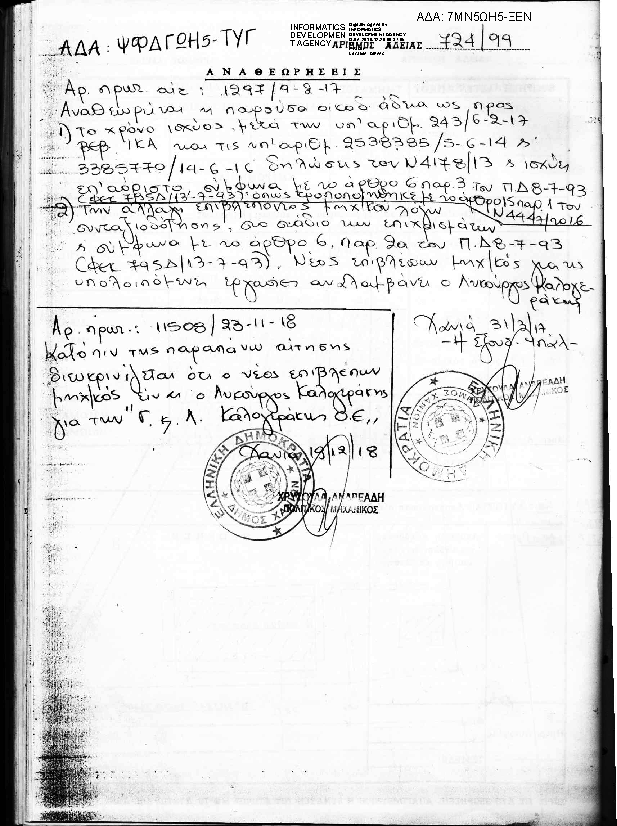 ΑΔΑ: 7ΜΝ5ΩΗ5-ΞΕΝ
INFORMATICS
DEVELOPMEN
T AGENCY
ΑΔΑ: ΨΦΔΓΩΗ5-ΤΥΓ
ΑΡΙΘΜΟΣ ΑΔΕΙΑΣ 724/99
ΑΝΑΘΕΩΡΗΣΕΙΣ
Αρ. πρωτ. αιτ: 1297/9-2-17
Αναθεωρείται η παρούσα οικοδ. άδεια ως προς
1) Το χρόνο ισχύος μετά την υπ' αριθμ. 243/6-2-17
βεβ. ΙΚΑ και τις υπ' αριθμ. 2538385/5-6-14 &
3385770/14-6-16 δηλώσεις του Ν4178/13 & ισχύει
επ' αόριστο σύμφωνα με το άρθρο 6 παρ. 3 του ΠΔ 8-7-93
(φεκ 795Δ/13-7-93) όπως τροποποιήθηκε με το άρθρο 15 παρ. 1 του
Ν4447/2016
2) Την αλλαγή επιβλέποντος μηχ/κού λόγω
συνταξιοδότησης, στο στάδιο των επιχρισμάτων
& σύμφωνα με το άρθρο 6, παρ. 9α του Π.Δ 8-7-93
(φεκ 795Δ/13-7-93). Νέος επιβλέπων μηχ/κός για τις
υπολοιπόμενες εργασίες αναλαμβάνει ο Λυκούργος Καλογε-
ράκης
Χανιά 31/2/17
-Η Εξουσ. Υπάλ-
ΑΝΔΡΕΑΔΗ
ΕΛΛΗΝΙΚΗ ΔΗΜΟΚΡΑΤΙΑ
ΔΗΜΟΣ ΧΑΝΙΩΝ
Αρ. πρωτ.: 11508/23-11-18
Κατόπιν της παραπάνω αίτησης
διευκρινίζεται ότι ο νέος επιβλέπων
μηχ/κός είναι ο Λυκούργος Καλογεράκης
για την "Γ. & Λ. Καλογεράκης Ο.Ε."
Χανιά 19/12/18
ΕΛΛΗΝΙΚΗ ΔΗΜΟΚΡΑΤΙΑ
ΔΗΜΟΣ ΧΑΝΙΩΝ
ΧΡΥΣΟΥΛΑ ΑΝΔΡΕΑΔΗ
ΠΟΛΙΤΙΚΟΣ ΜΗΧΑΝΙΚΟΣ